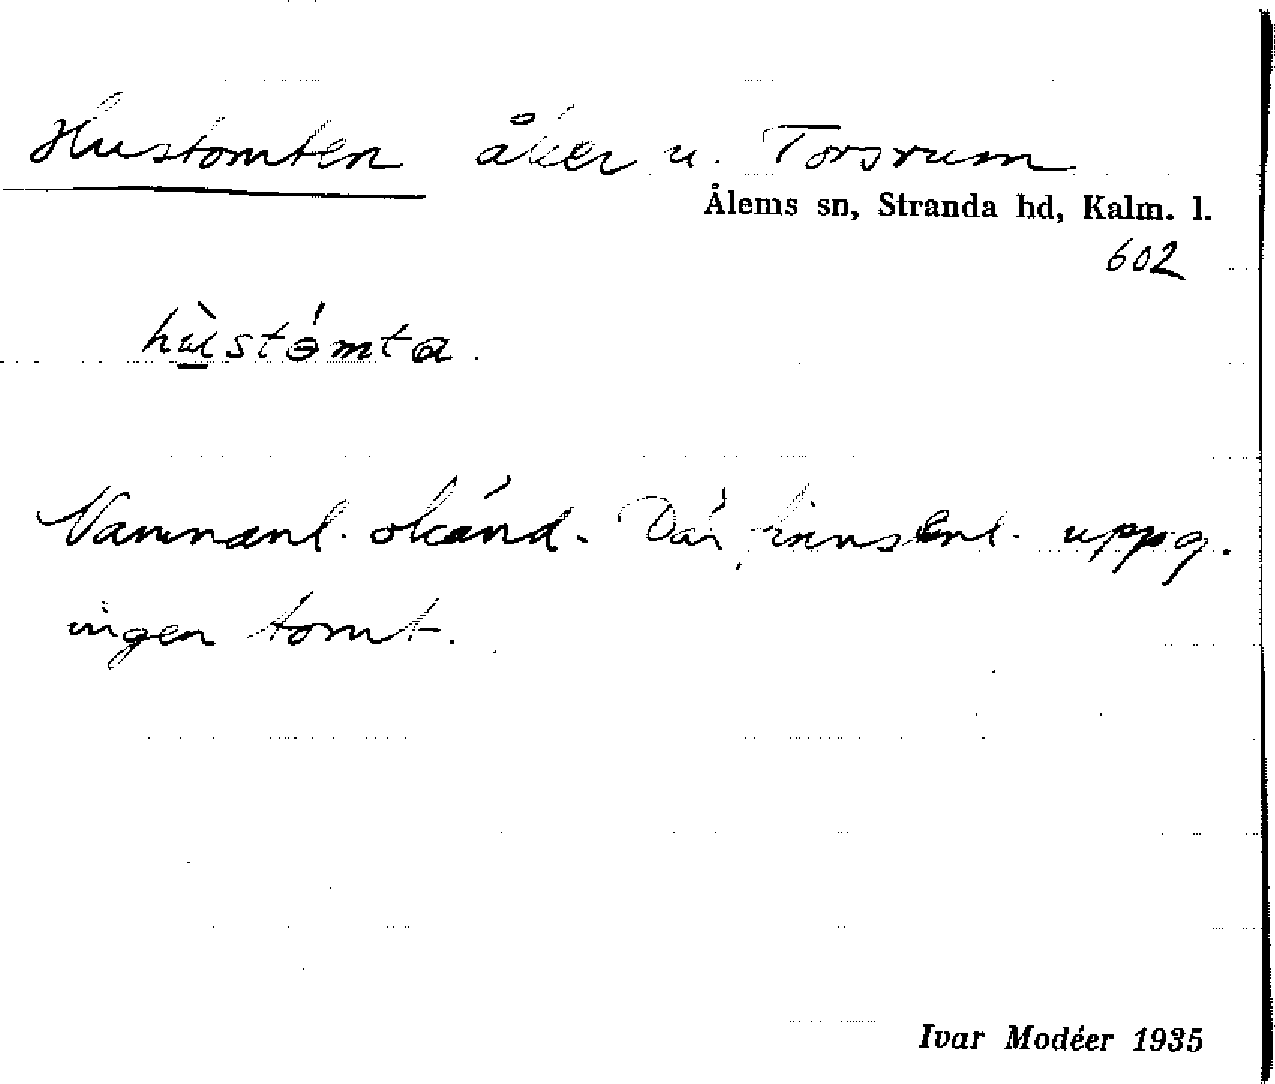 Hustomten åker u. Torsrum
Ålems sn, Stranda hd, Kalm. l.
602
hùstómta.
Namnanl. okänd. Där finns enl. uppg.
ingen tomt.
Ivar Modéer 1935